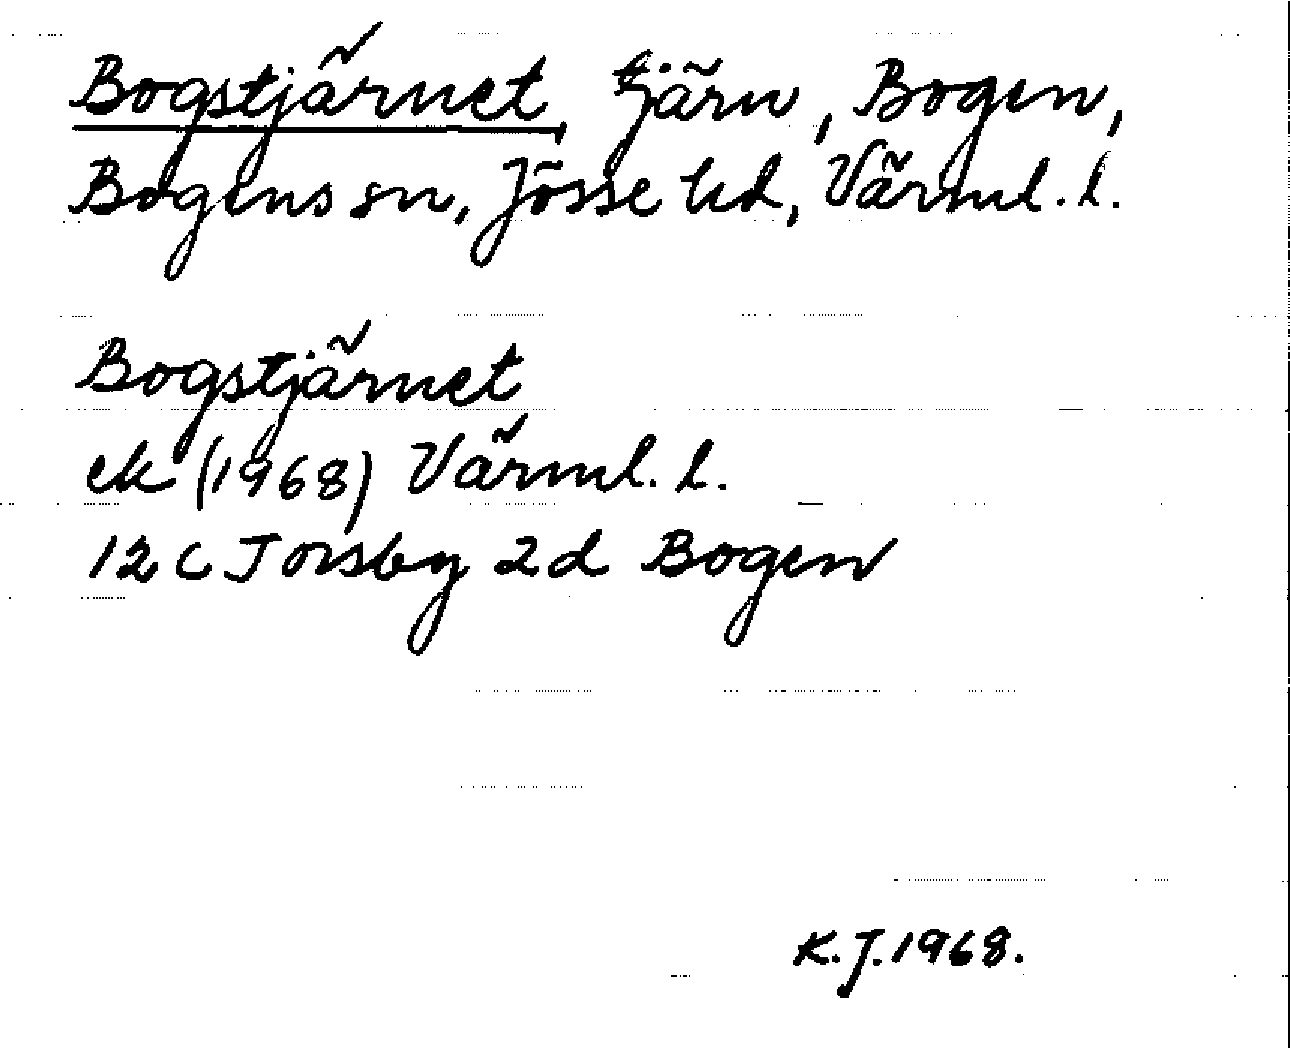 Bogstjärnet, tjärn, Bogen,
Bogens sn, Jösse hd, Värml. l.
Bogstjärnet
ek (1968) Värml. l.
12 C Torsby 2d Bogen
K.J. 1968.